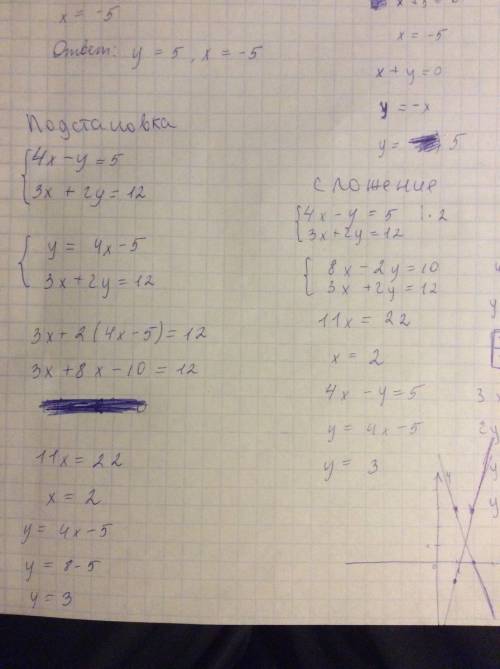 x = -5
Ответ: y = 5, x = -5
Подстановка
4x - y = 5
3x + 2y = 12
y = 4x - 5
3x + 2y = 12
3x + 2(4x - 5) = 12
3x + 8x - 10 = 12
11x = 22
x = 2
y = 4x - 5
y = 8 - 5
y = 3
x = -5
x + y = 0
y = -x
y = 5
сложение
4x - y = 5 | · 2
3x + 2y = 12
8x - 2y = 10
3x + 2y = 12
11x = 22
x = 2
4x - y = 5
y = 4x - 5
y = 3
y
3x
2y
y
y